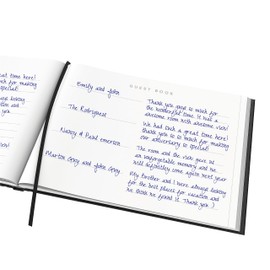 GUEST BOOK
Emily and John
Thank you so much for
the wonderful time. It was a
awesome room with awesome view!
The Rodriguest
We had such a great time here!
thank you so so much for making
our anniversary so special!
Nancy & Paul emerson
The room and the view gave us
an unforgettable memory and we
will definitely come again next year
Marton Gray and John Gray
My brother and I were always looking
for the best places for vacation and
we think we found it. Thank you )
great time here!
much for making
special!